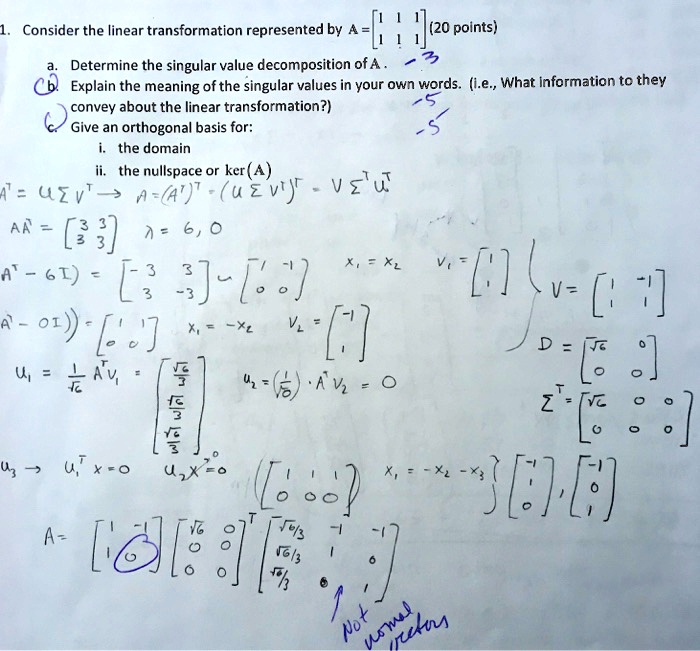 1. Consider the linear transformation represented by A = [1 1 1; 1 1 1] (20 points)
a. Determine the singular value decomposition of A. -3
b. Explain the meaning of the singular values in your own words. (i.e., What information to they
convey about the linear transformation?) -5
c. Give an orthogonal basis for: -5
i. the domain
ii. the nullspace or ker(A)
Aᵀ = UΣVᵀ → A = (Aᵀ)ᵀ = (UΣVᵀ)ᵀ = VΣᵀUᵀ
AAᵀ = [3 3; 3 3] λ = 6, 0
Aᵀ - 6I) = [-3 3; 3 -3] ~ [1 -1; 0 0] x₁ = x₂ V₁ = [1; 1] } V = [1 -1; 1 1]
Aᵀ - 0I)) = [1 1; 0 0] x₁ = -x₂ V₂ = [-1; 1]
D = [√6 0; 0 0]
u₁ = 1/√6 AᵀV₁ = [√6/3; √6/3; √6/3] u₂ = (1/√0) · AᵀV₂ = 0 Σᵀ = [√6 0 0; 0 0 0]
u₃ → u₁ᵀx = 0 u₂x = 0 ([1 1 1; 0 0 0]) x₁ = -x₂ - x₃ } [-1; 1; 0], [-1; 0; 1]
A = [1 -1; 1 0] [√6 0; 0 0; 0 0]ᵀ [√6/3 -1 -1; √6/3 1 0; √6/3 0 1]
Not
normal
vectors